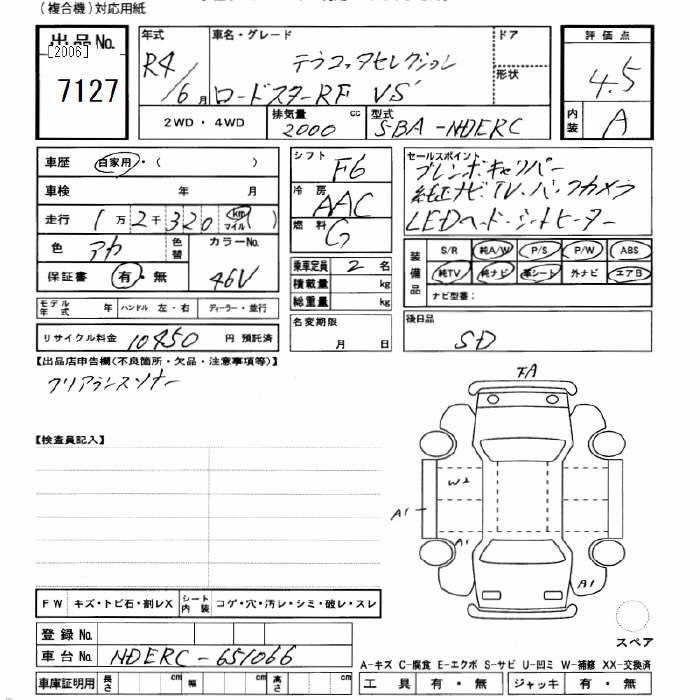 (複合機)対応用紙
出品No.
[2006]
7127
年式 R4/6月
車名・グレード テラコッタセレクション
ロードスターRF VS
ドア
形状
2WD・4WD
排気量 2000 cc
型式 5BA-NDERC
評価点
4.5
内装 A
車歴 自家用・( )
車検 年 月
走行 1万2千320 km マイル( )
色 アカ 色替
カラーNo. 46V
保証書 有・無
モデル年式 年 ハンドル 左・右 ディーラー・並行
リサイクル料金 10450 円 預託済
シフト F6
冷房 AAC
燃料 G
乗車定員 2 名
積載量 kg
総重量 kg
名変期限
月 日
セールスポイント
ブレンボキャリパー
純正ナビTV.バックカメラ
LEDヘッド・シートヒーター
装備品
S/R 純A/W P/S P/W ABS
純TV 純ナビ 革シート 外ナビ エアB
ナビ型番:
後日品
SD
【出品店申告欄(不良箇所・欠品・注意事項等)】
クリアランスソナー
【検査員記入】
FA
W2
A1
A1
A1
スペア
FW キズ・トビ石・割レX シート内装 コゲ・穴・汚レ・シミ・破レ・スレ
登録No.
車台No. NDERC-651066
車庫証明用 長さ cm 幅 cm 高さ cm
A-キズ C-腐食 E-エクボ S-サビ U-凹ミ W-補修 XX-交換済
工具 有・無 ジャッキ 有・無